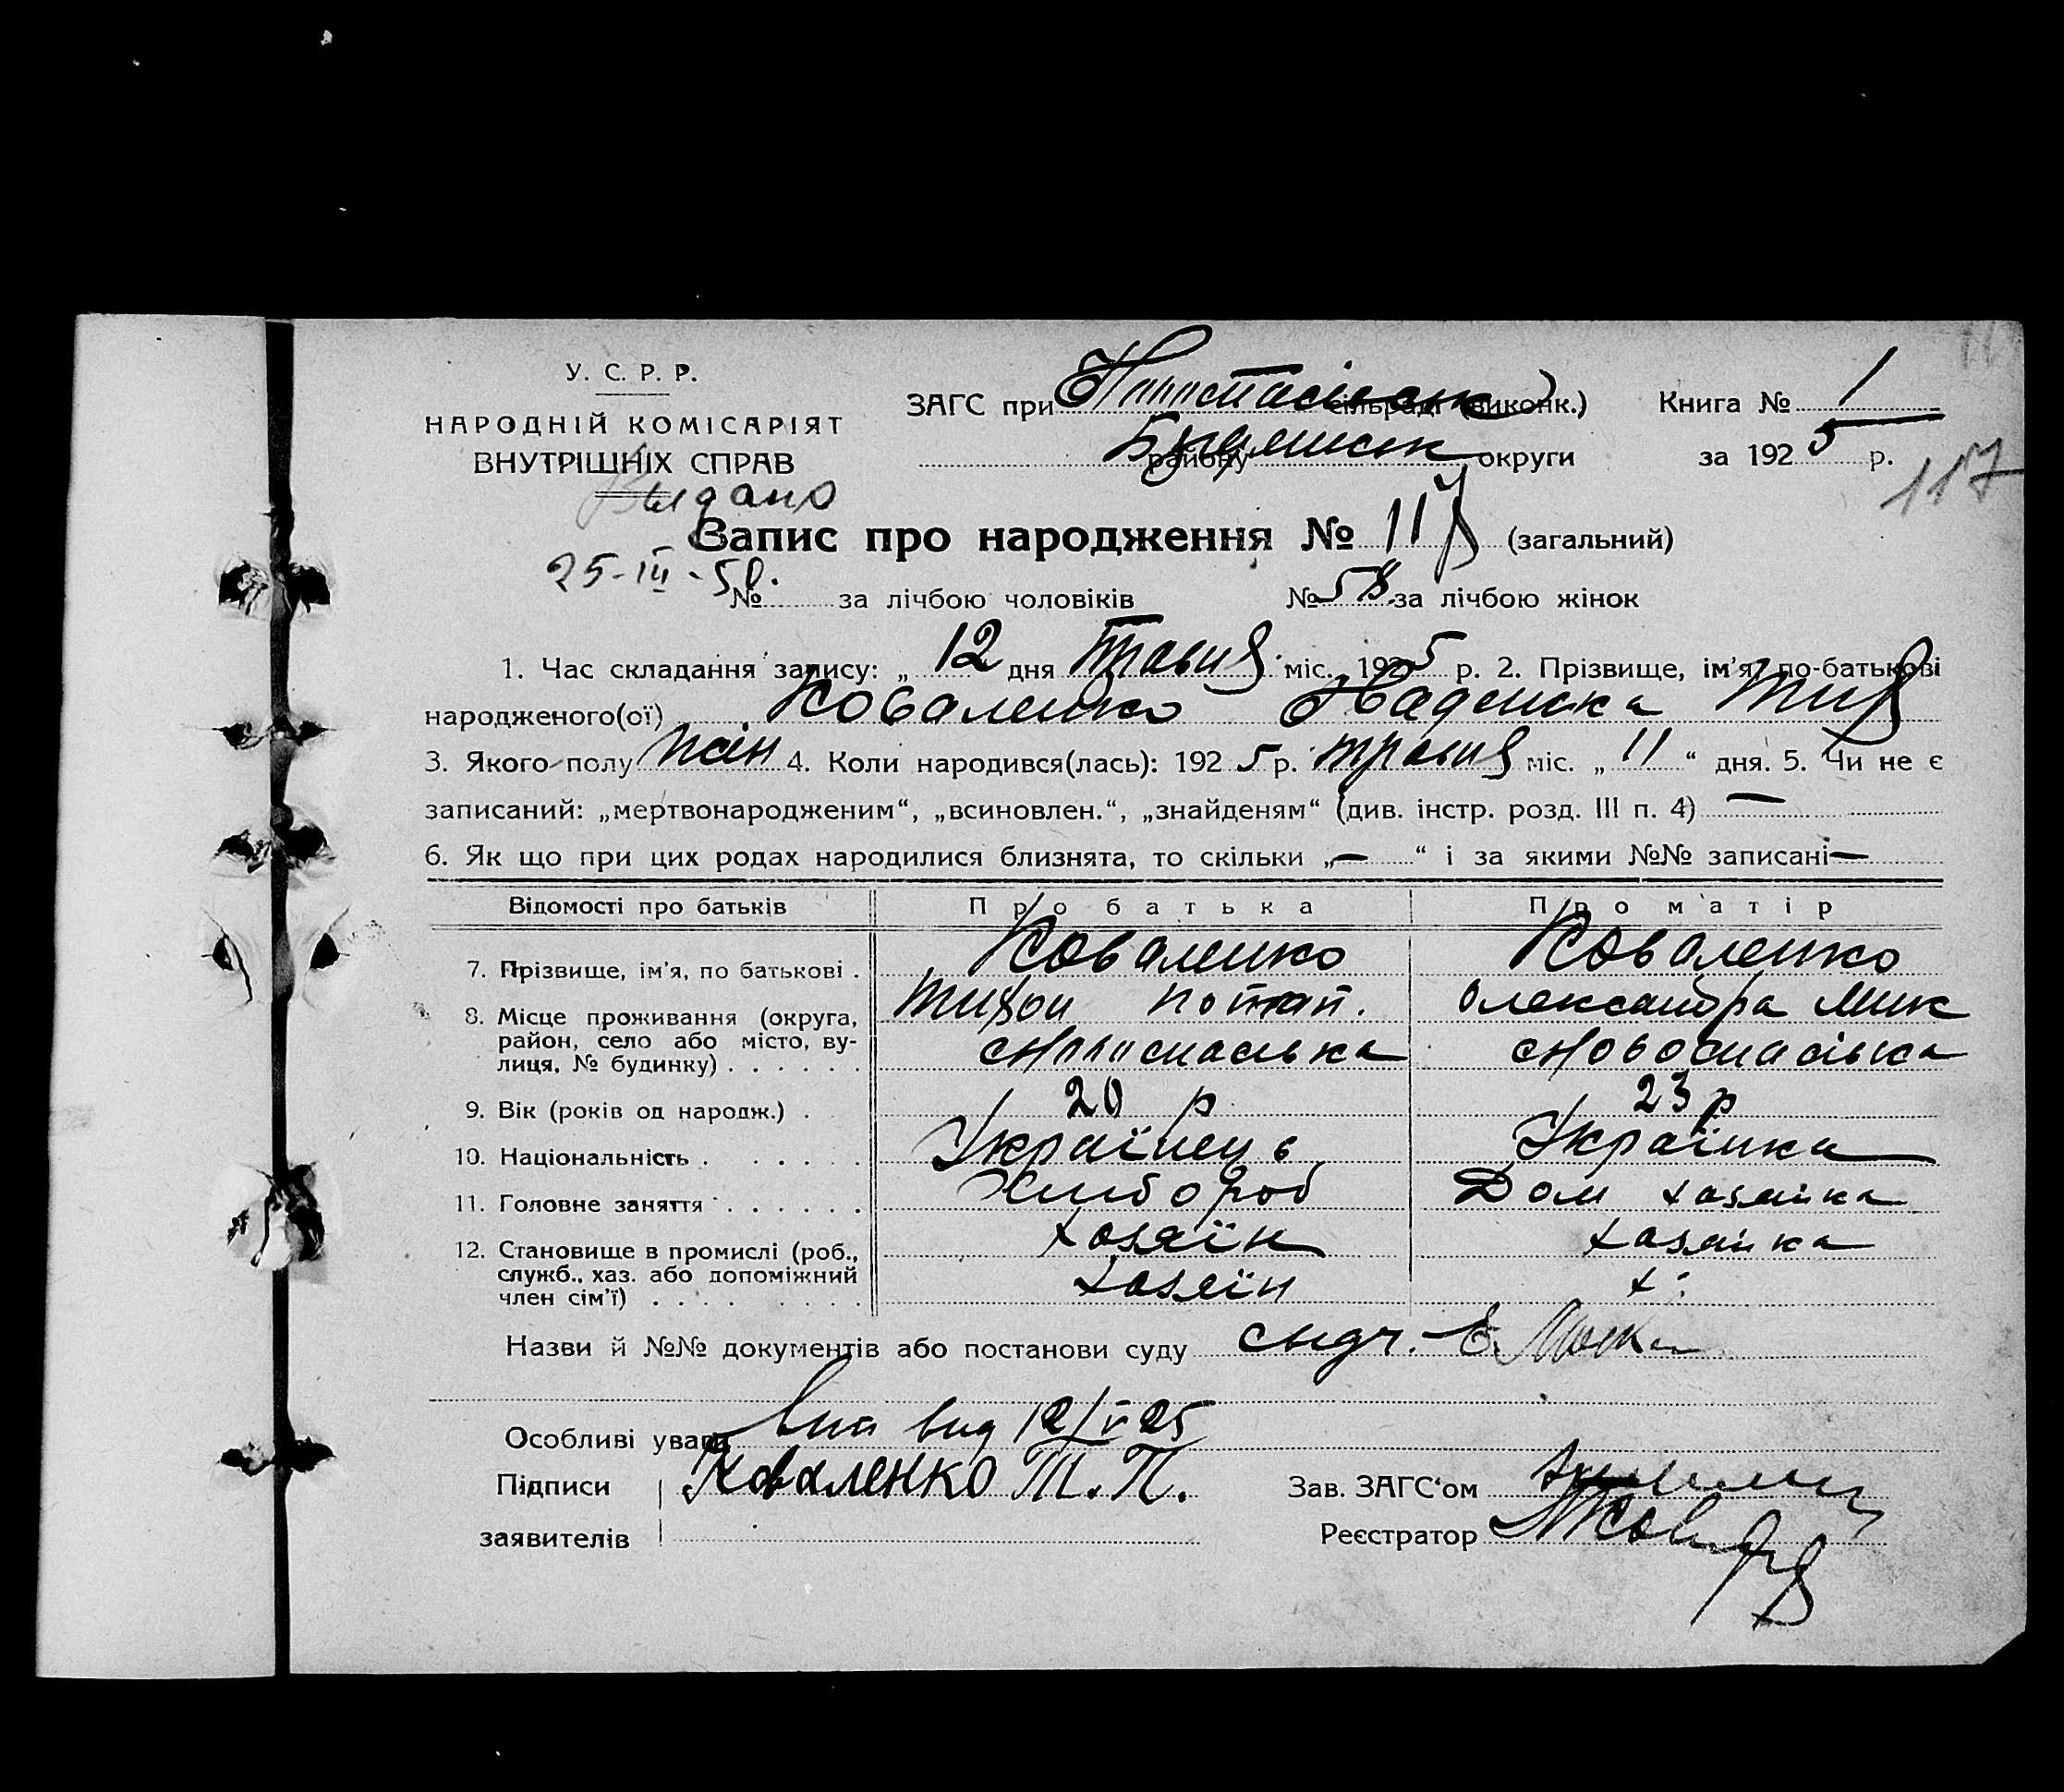 У. С. Р. Р.
НАРОДНІЙ КОМІСАРІЯТ
ВНУТРІШНІХ СПРАВ
ЗАГС при сільраді (виконк.)
району округи
Книга № 1
за 1925 р.
117
Выдано
25-III-
Запис про народження № 117 (загальний)
№ за лічбою чоловіків № 58 за лічбою жінок
1. Час складання запису: „ 12 дня Травня міс. 1925 р. 2. Прізвище, ім'я, по-батькові
народженого(ої) Коваленко Надежка Тиф
3. Якого полу жін 4. Коли народився(лась): 1925 р. травня міс. „ 11 “ дня. 5. Чи не є
записаний: „мертвонародженим“, „всиновлен.“, „знайденям“ (див. інстр. розд. III п. 4) —
6. Як що при цих родах народилися близнята, то скільки „— “ і за якими №№ записані —
Відомості про батьків Про батька Про матір
7. Прізвище, ім'я, по батькові . Коваленко Коваленко
Потап. Олександра Мик
8. Місце проживання (округа,
район, село або місто, ву-
лиця, № будинку) . . . . . .
9. Вік (років од народж.) . 20 р 23 р
10. Національність . . . . . Українець Українка
11. Головне заняття . . . . . . Хлібороб Дом хазяйка
хазяїн хазяйка
12. Становище в промислі (роб.,
служб., хаз. або допоміжний
член сім'ї) . . . . . . . . хазяїн х:
Назви й №№ документів або постанови суду
Особливі уваги вид 12/V 25
Підписи Коваленко Т. П.
заявителів
Зав. ЗАГС'ом
Реєстратор